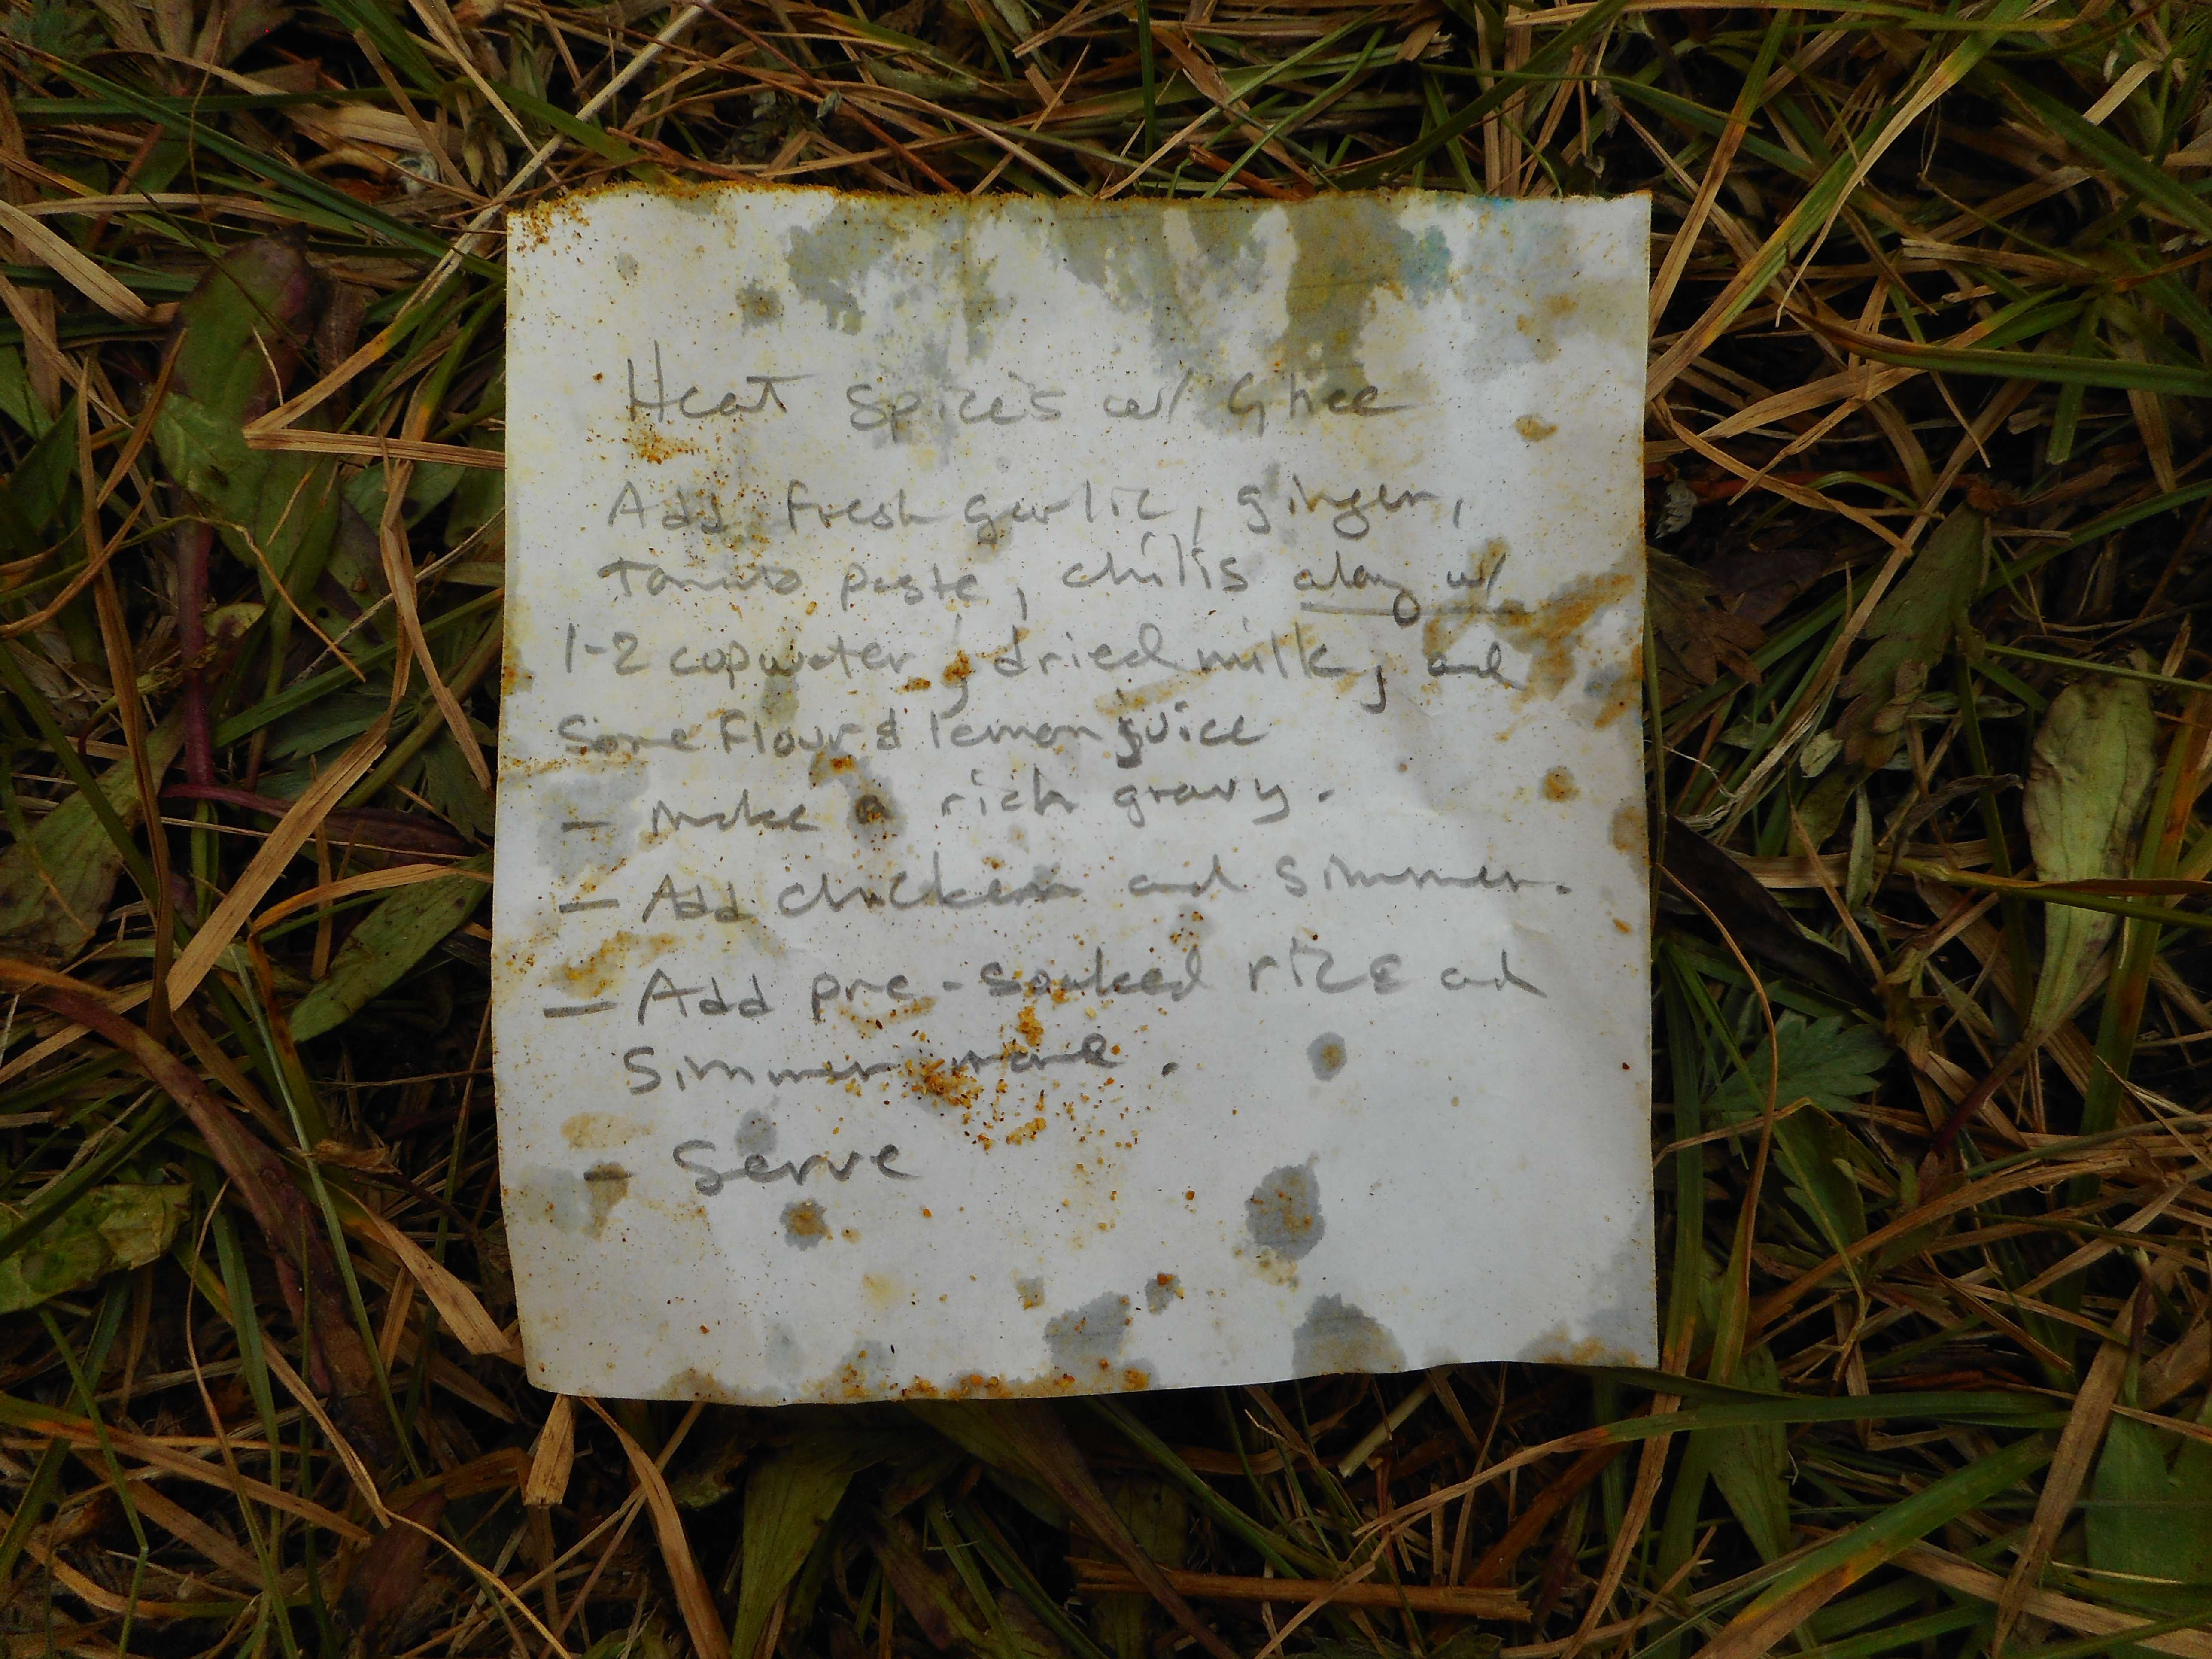 Heat spices w/ Ghee
Add fresh garlic, ginger,
tomato paste, chilis along w/
1-2 cop water, dried milk, and
some flour & lemon juice
- Make a rich gravy.
- Add chicken and simmer.
- Add pre-soaked rice and
simmer more.
- Serve